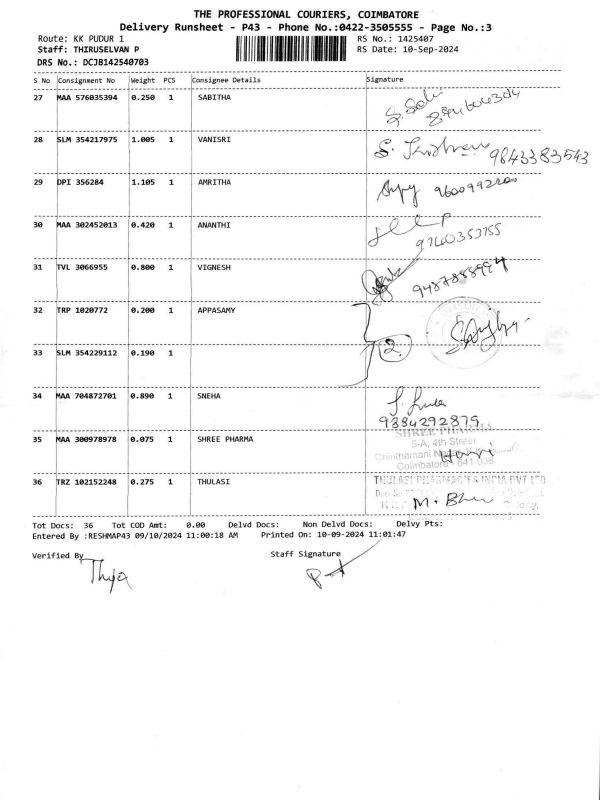 THE PROFESSIONAL COURIERS, COIMBATORE
Delivery Runsheet - P43 - Phone No.:0422-3505555 - Page No.:3
Route: KK PUDUR 1 RS No.: 1425407
Staff: THIRUSELVAN P RS Date: 10-Sep-2024
DRS No.: DCJB142540703
S No Consignment No Weight PCS Consignee Details Signature
27 MAA 576035394 0.250 1 SABITHA
28 SLM 354217975 1.005 1 VANISRI 9843383543
29 DPI 356284 1.105 1 AMRITHA
30 MAA 302452013 0.420 1 ANANTHI
31 TVL 3066955 0.800 1 VIGNESH
32 TRP 1020772 0.200 1 APPASAMY
2
33 SLM 354229112 0.190 1
34 MAA 704872701 0.890 1 SNEHA
9384292879
35 MAA 300978978 0.075 1 SHREE PHARMA
SHREE PHARMA
5-A, 4th Street
Coimbatore - 641 038
36 TRZ 102152248 0.275 1 THULASI
THULASI PHARMACIES INDIA PVT LTD
Tot Docs: 36 Tot COD Amt: 0.00 Delvd Docs: Non Delvd Docs: Delvy Pts:
Entered By :RESHMAP43 09/10/2024 11:00:18 AM Printed On: 10-09-2024 11:01:47
Verified By Staff Signature